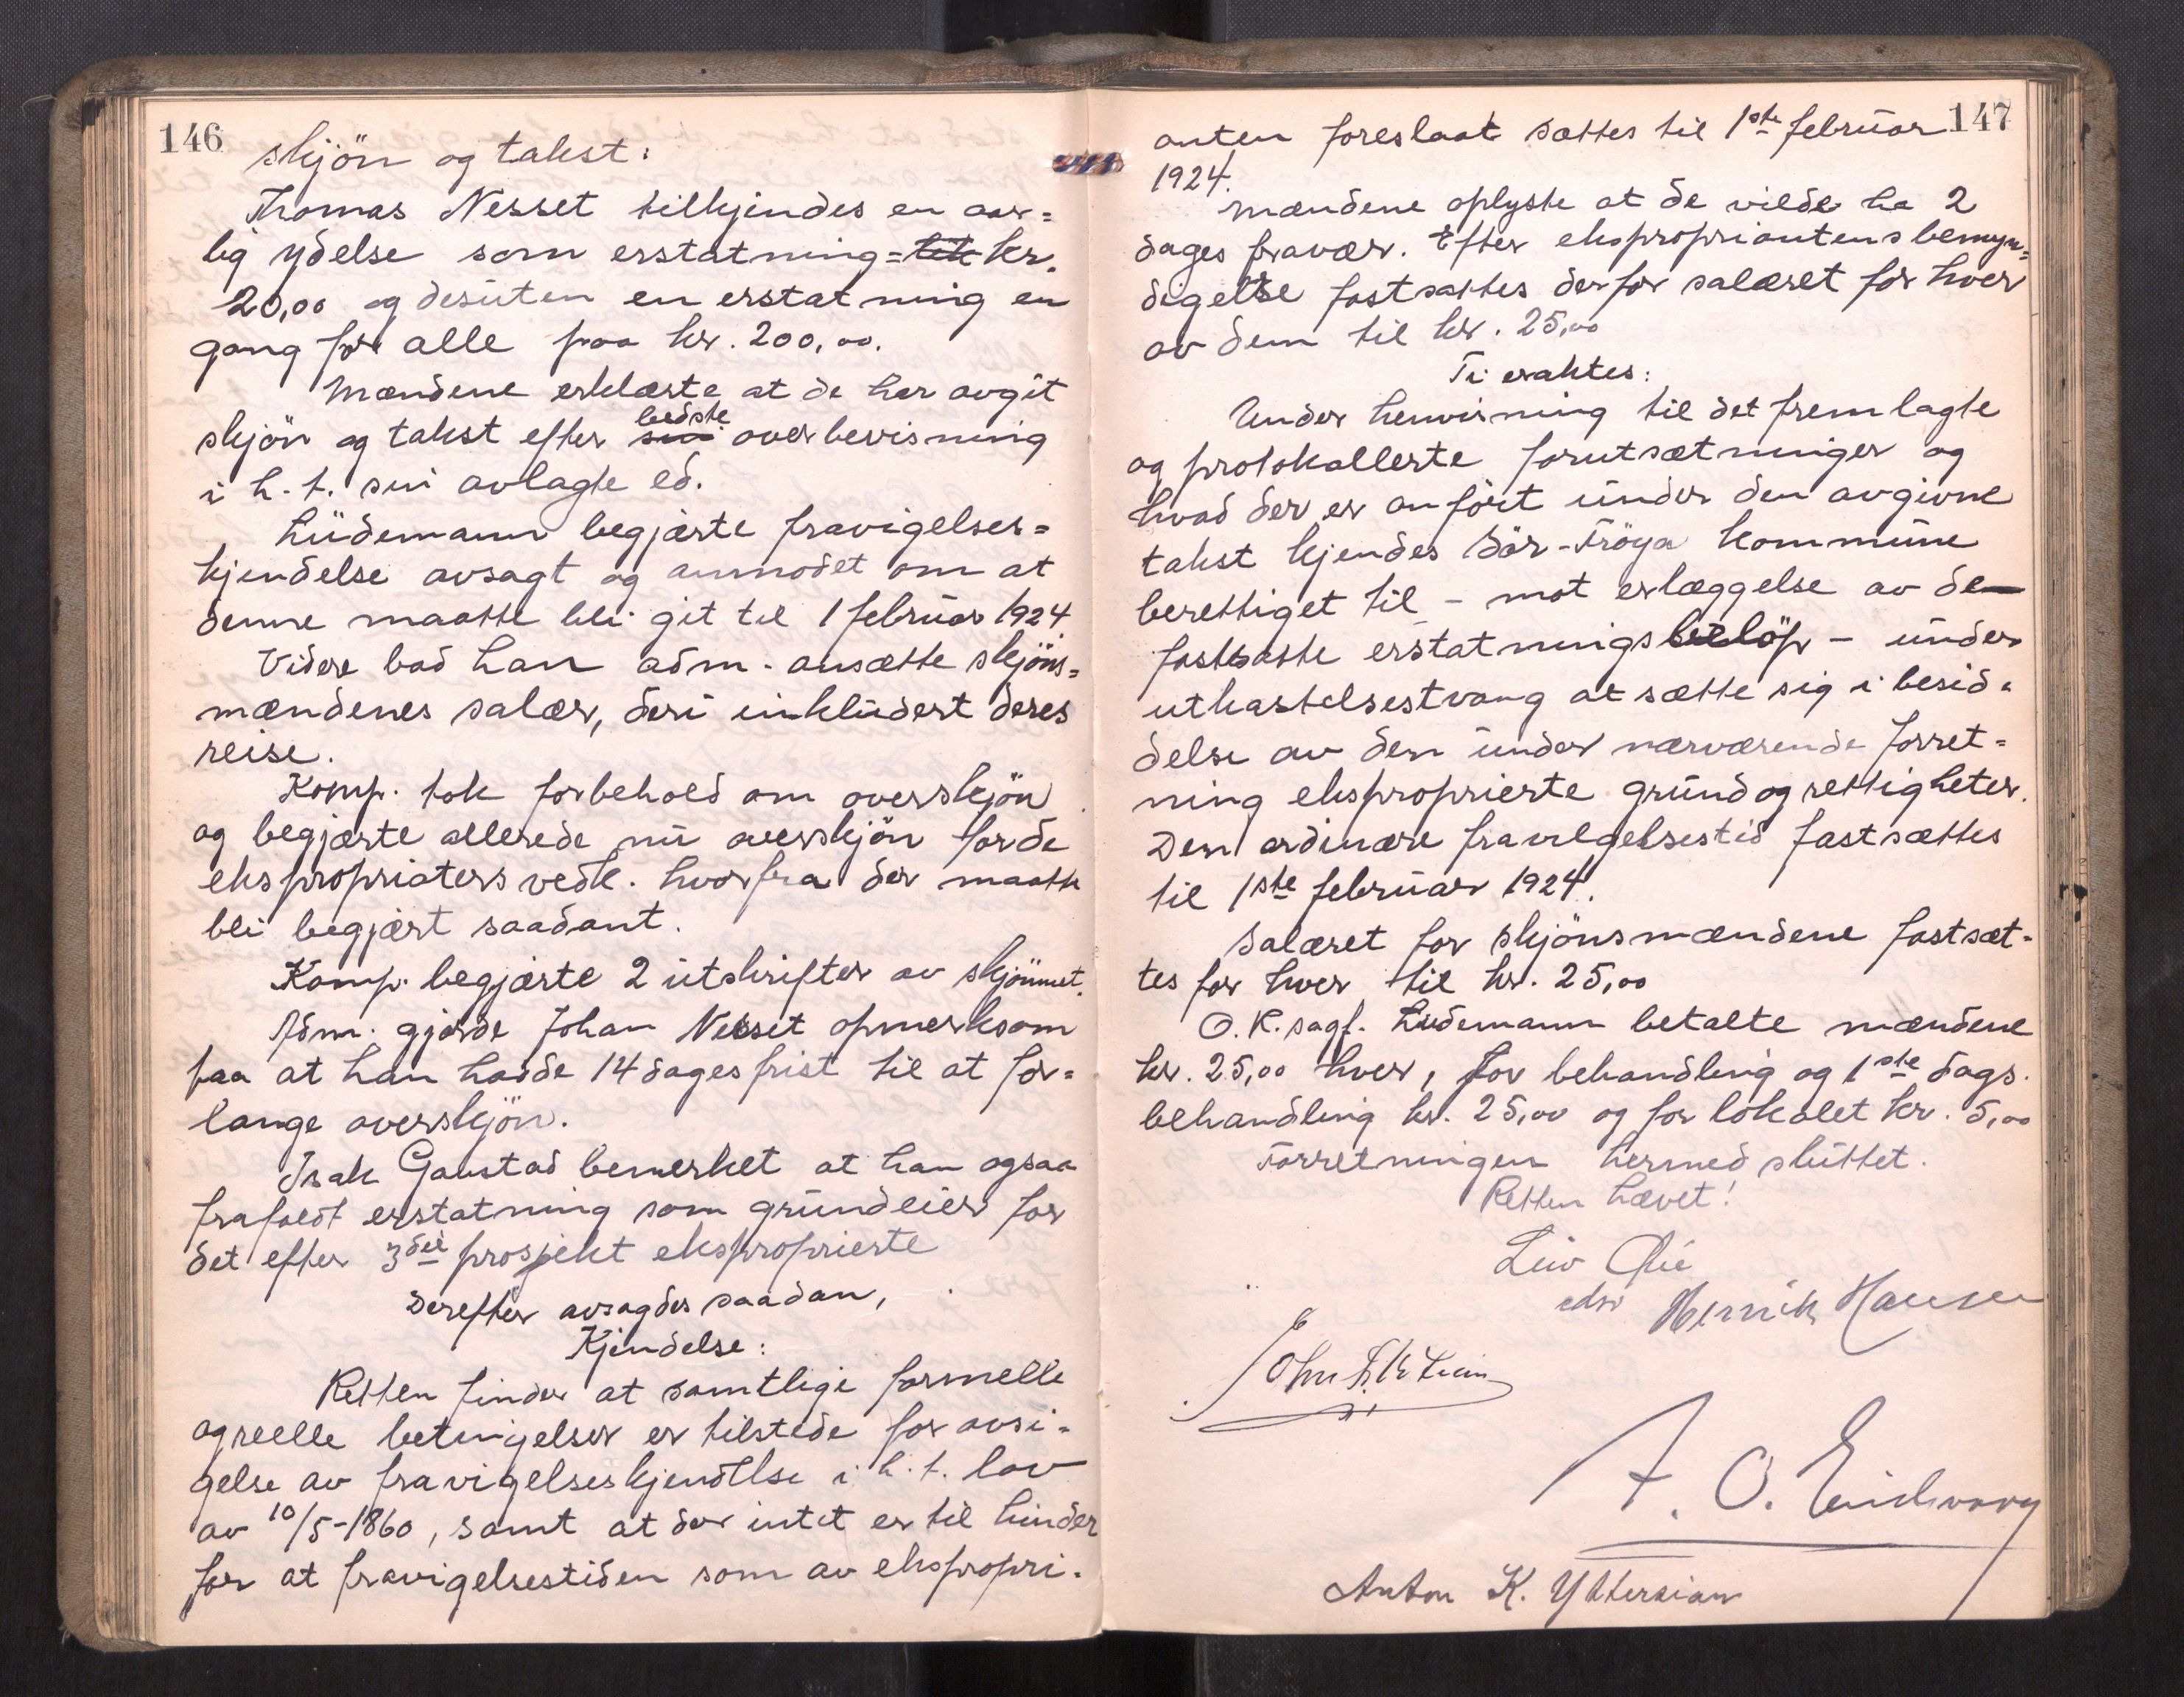 146
skjön og takst:
Thomas Nesset tilkjendes en aar=
lig ydelse som erstatning = til kr.
20,00 og desuten en erstatning en
gang for alle paa kr. 200,00.
Mændene erklærte at de har avgit
bedste
skjön og takst efter sin overbevisning
i h. t. sin avlagte ed.
Lüdemann begjærte fravigelses=
kjendelse avsagt og anmodet om at
denne maatte bli git til 1 februar 1924
Videre bad han adm. ansætte skjöns=
mændenes salær, deri inkludert deres
reise.
Komp. tok forbehold om overskjön
og begjærte allerede nu overskjön for de
ekspropriaters vedk. hvorfra der maatte
bli begjært saadant.
Komp. begjærte 2 utskrifter av skjönnet.
Adm. gjorde Johan Nesset opmerksom
paa at han hadde 14 dages frist til at for=
lange overskjön.
Isak Gaustad bemerket at han ogsaa
frafaldt erstatning som grundeier for
det efter 3die prosjekt eksproprierte
Derefter avsagdes saadan,
Kjendelse:
Retten finder at samtlige formelle
og reelle betingelser er tilstede for avsi=
gelse av fravigelseskjendelse i h. t. lov
av 10/5-1860, samt at der intet er til hinder
for at fravigelsestiden som av ekspropri=
147
anten foreslaat sættes til 1ste februar
1924.
Mændene oplyste at de vilde ha 2
dages fravær. Efter ekspropriantens bemyn=
digelse fastsattes derfor salæret for hver
av dem til kr. 25,00
Ti eraktes:
Under henvisning til det fremlagte
og protokollerte forutsætninger og
hvad der er anfört under den avgivne
takst kjendes Sör-Fröya kommune
berettiget til - mot erlæggelse av de
fastsatte erstatningsbelöp - under
utkastelsestvang at sætte sig i besid=
delse av den under nærværende forret=
ning eksproprierte grund og rettigheter.
Den ordinære fravigelsestid fastsættes
til 1ste februar 1924.
Salæret for skjönsmændene fastsæt=
tes for hver til kr. 25,00
O. R. sagf. Lüdemann betalte mændene
kr. 25,00 hver, for behandling og 1ste dags
behandling kr. 25,00 og for lokalet kr. 5,00
Forretningen hermed sluttet.
Retten hævet!
Henrik Hansen
John
A. O.
Anton K. Yttersian